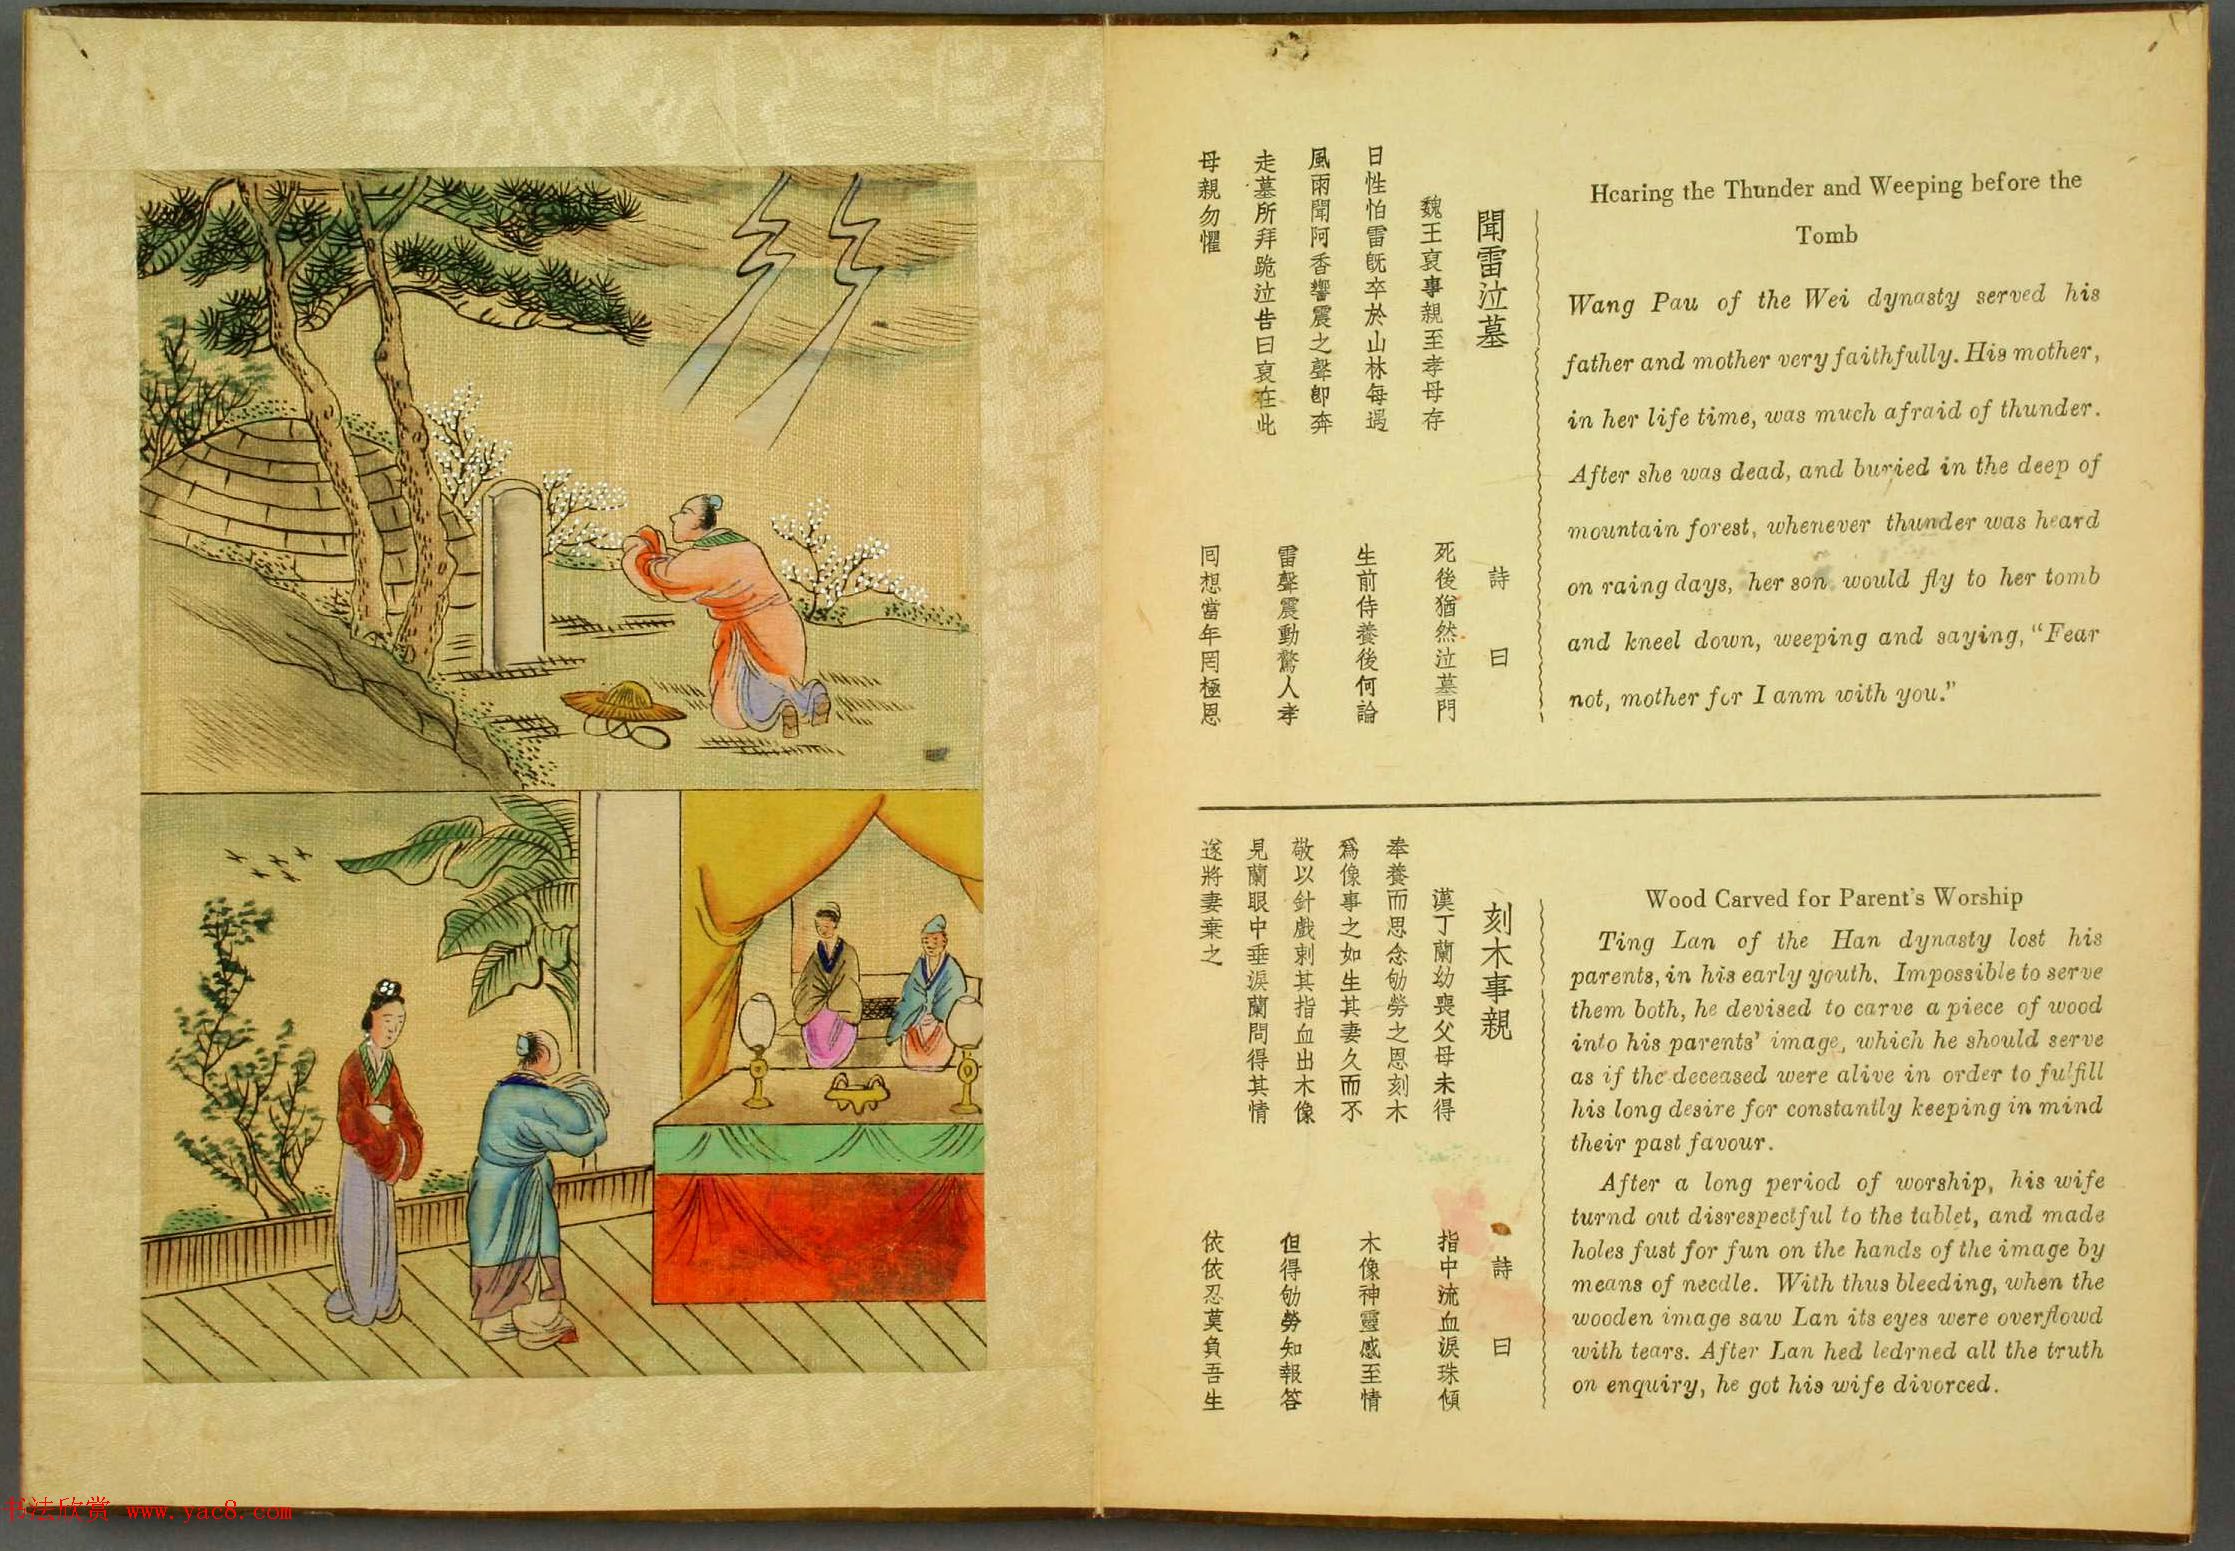 Hearing the Thunder and Weeping before the
Tomb
Wang Pau of the Wei dynasty served his
father and mother very faithfully. His mother,
in her life time, was much afraid of thunder.
After she was dead, and buried in the deep of
mountain forest, whenever thunder was heard
on raing days, her son would fly to her tomb
and kneel down, weeping and saying, "Fear
not, mother for I anm with you."
聞雷泣墓
魏王裒事親至孝母存
日性怕雷旣卒於山林每遇
風雨聞阿香響震之聲卽奔
走墓所拜跪泣告曰裒在此
母親勿懼
詩曰
死後猶然泣墓門
生前侍養後何論
雷聲震動驚人孝
囘想當年罔極恩
Wood Carved for Parent's Worship
Ting Lan of the Han dynasty lost his
parents, in his early youth. Impossible to serve
them both, he devised to carve a piece of wood
into his parents' image, which he should serve
as if the deceased were alive in order to fulfill
his long desire for constantly keeping in mind
their past favour.
After a long period of worship, his wife
turnd out disrespectful to the tablet, and made
holes fust for fun on the hands of the image by
means of needle. With thus bleeding, when the
wooden image saw Lan its eyes were overflowd
with tears. After Lan hed ledrned all the truth
on enquiry, he got his wife divorced.
刻木事親
漢丁蘭幼喪父母未得
奉養而思念劬勞之恩刻木
爲像事之如生其妻久而不
敬以針戲刺其指血出木像
見蘭眼中垂淚蘭問得其情
遂將妻棄之
詩曰
指中流血淚珠傾
木像神靈感至情
但得劬勞知報答
依依忍莫負吾生
书法欣赏 www.yac8.com